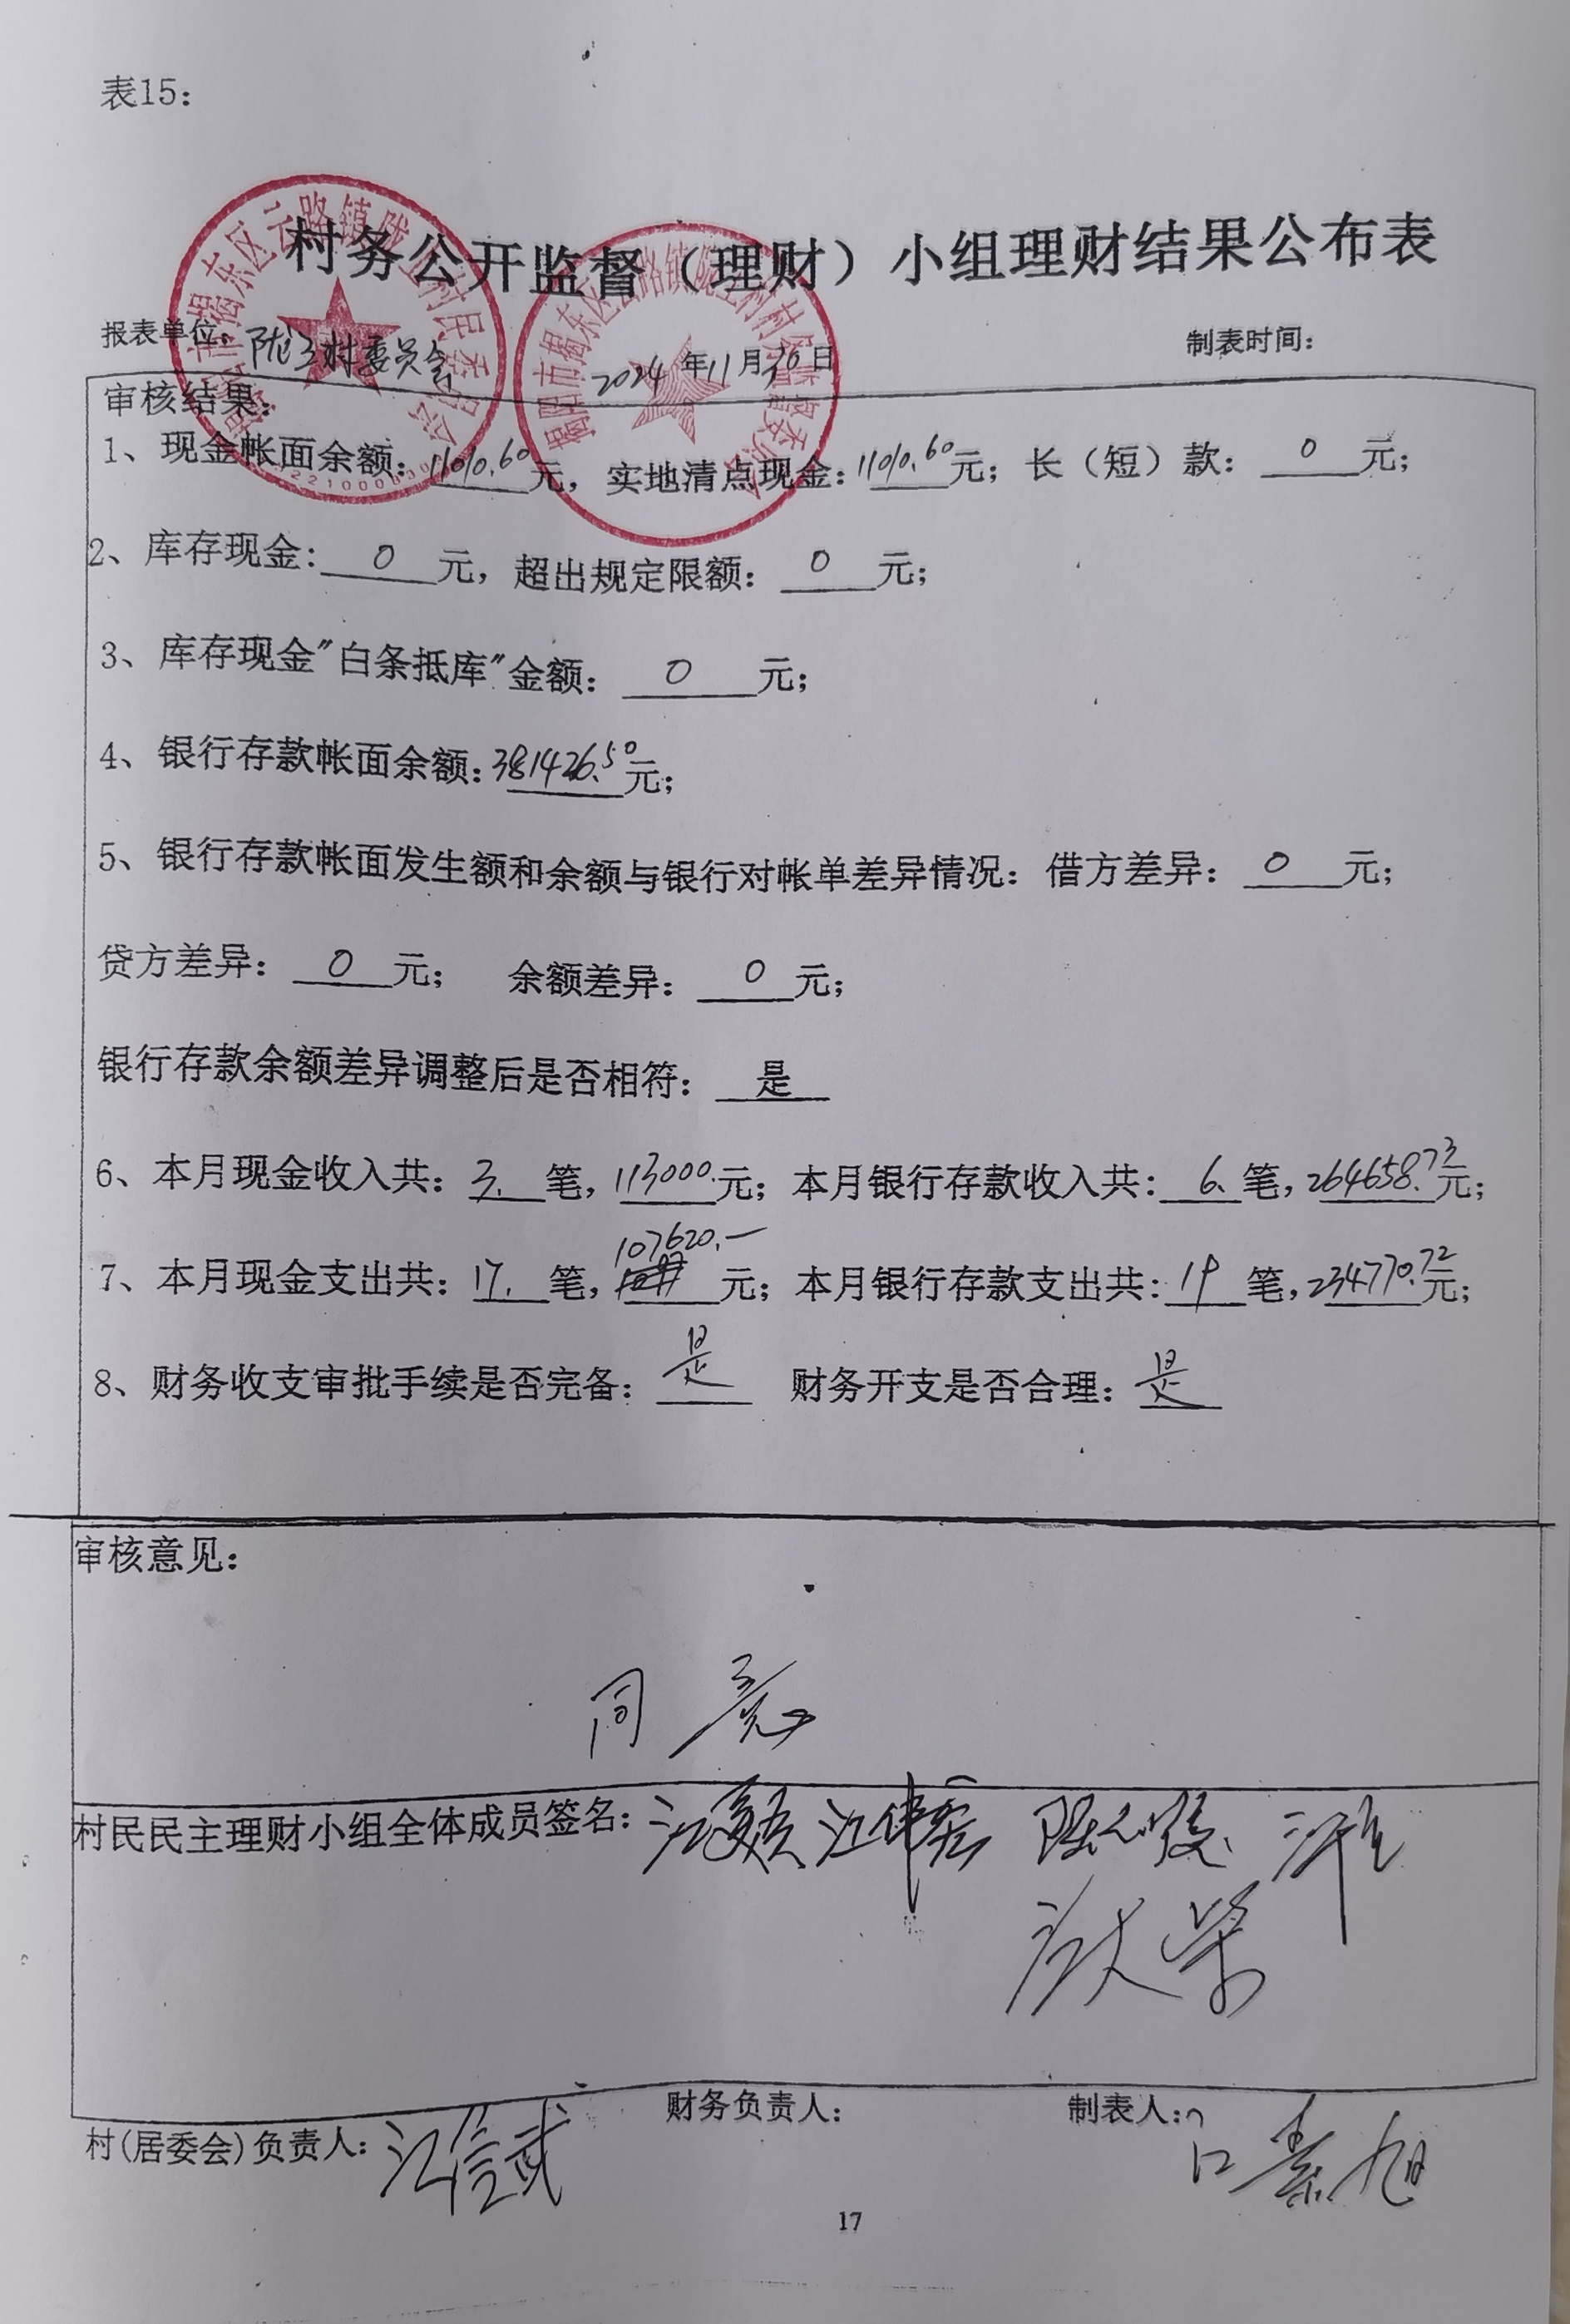 表15：
村务公开监督（理财）小组理财结果公布表
报表单位：陇上村委员会 2024年11月30日 制表时间：
审核结果：
1、现金帐面余额：11010.60元，实地清点现金：11010.60元；长（短）款：0元；
2、库存现金：0元，超出规定限额：0元；
3、库存现金"白条抵库"金额：0元；
4、银行存款帐面余额：381426.50元；
5、银行存款帐面发生额和余额与银行对帐单差异情况：借方差异：0元；
贷方差异：0元； 余额差异：0元；
银行存款余额差异调整后是否相符：是
6、本月现金收入共：3.笔，113000.元；本月银行存款收入共：6.笔，264658.73元；
7、本月现金支出共：17.笔，107620.一元；本月银行存款支出共：19笔，234770.72元；
8、财务收支审批手续是否完备：是 财务开支是否合理：是
审核意见：
同意
村民民主理财小组全体成员签名：
财务负责人： 制表人：
村(居委会)负责人：江信武
17